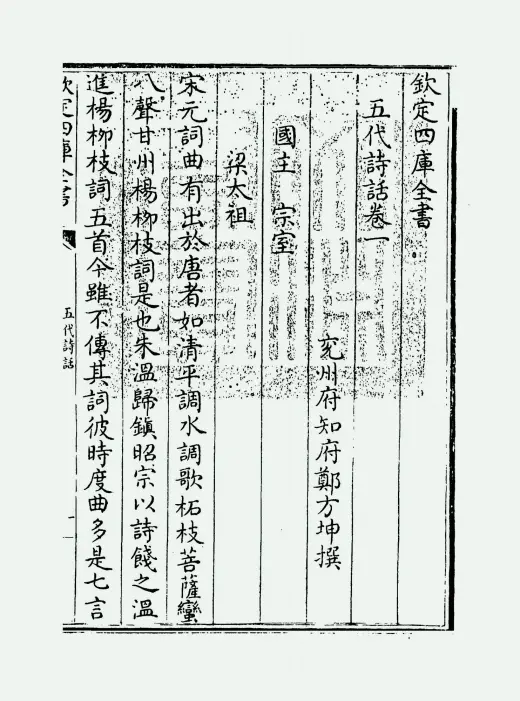 欽定四庫全書
五代詩話卷一
兗州府知府鄭方坤撰
國主　宗室
梁太祖
宋元詞曲有出於唐者如清平調水調歌柘枝菩薩蠻
八聲甘州楊柳枝詞是也朱溫歸鎮昭宗以詩餞之溫
進楊柳枝詞五首今雖不傳其詞彼時度曲多是七言
欽定四庫全書
五代詩話
一